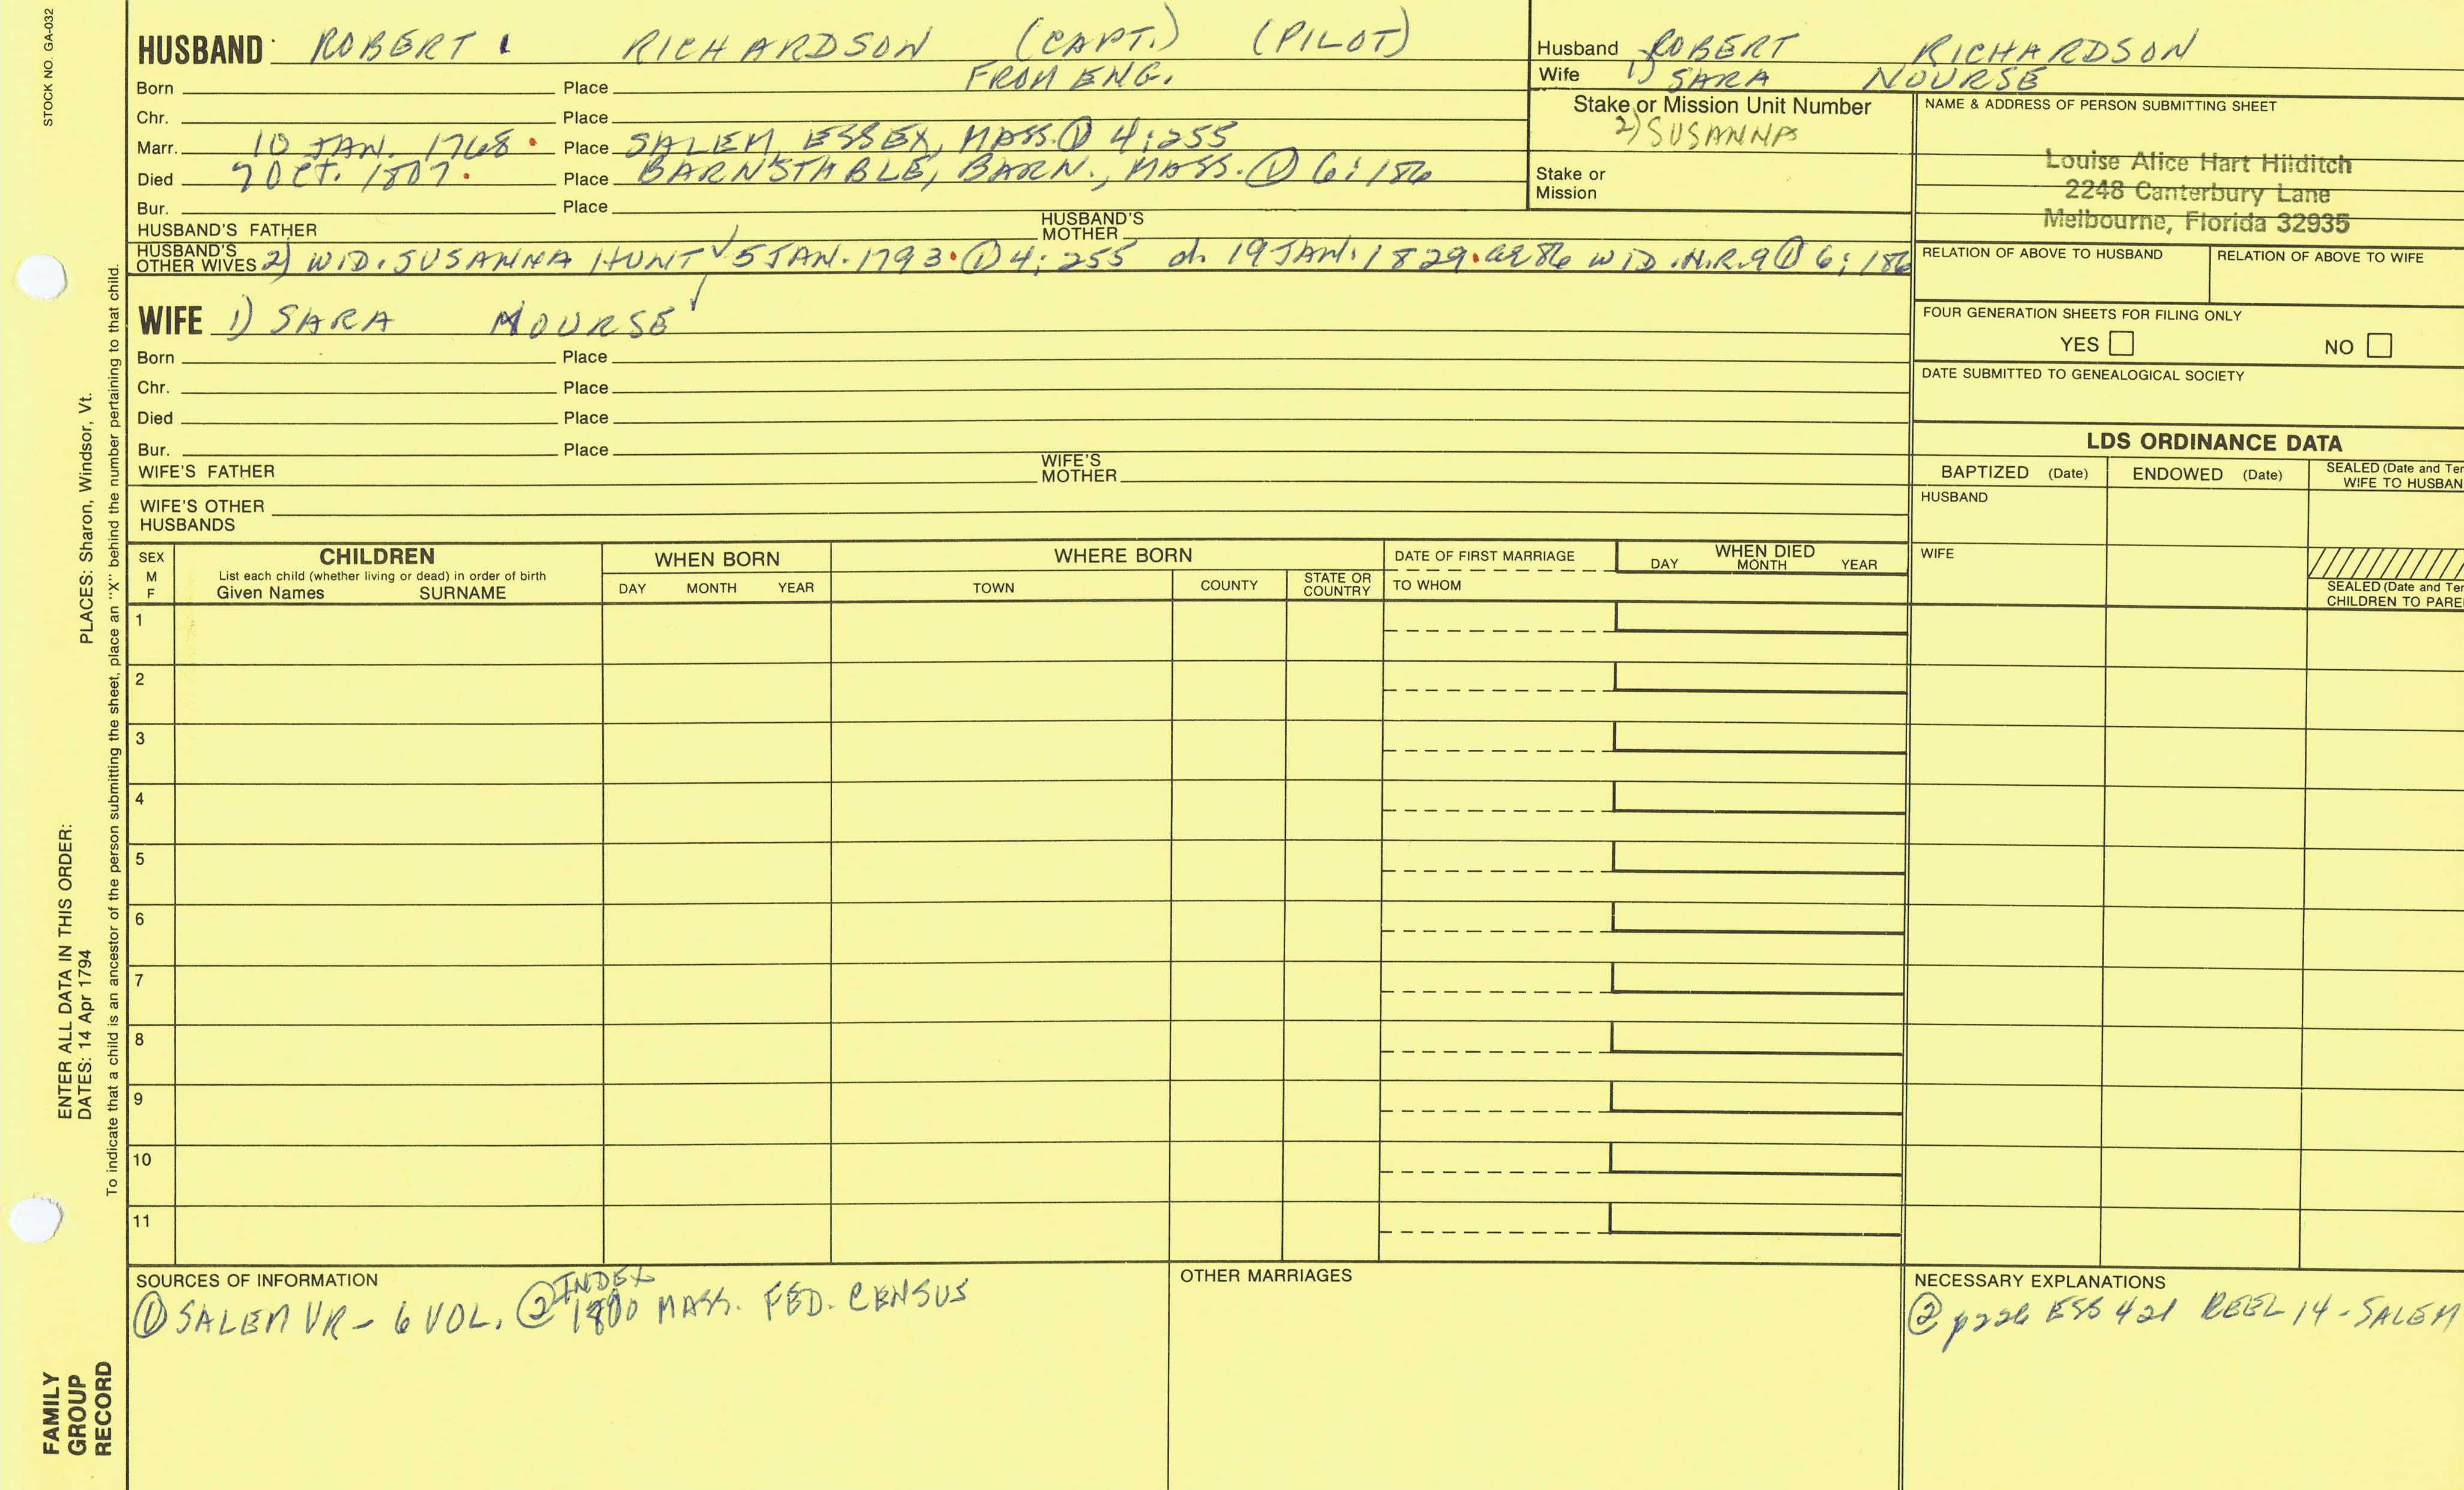 STOCK NO. GA-032
HUSBAND ROBERT RICHARDSON (CAPT.) (PILOT)
Born Place FROM ENG.
Chr. Place
Marr. 10 JAN. 1768 Place SALEM, ESSEX, MASS. ① 4:255
Died 7 OCT. 1807. Place BARNSTABLE, BARN., MASS. ① 6:186
Bur. Place
HUSBAND'S FATHER HUSBAND'S MOTHER
HUSBAND'S OTHER WIVES 2) WID. SUSANNA HUNT ✓ 5 JAN. 1793. ① 4:255 d. 19 JAN. 1829. ae 86 WID. N.R.9 ① 6:186
WIFE 1) SARA NOURSE
Born Place
Chr. Place
Died Place
Bur. Place
WIFE'S FATHER WIFE'S MOTHER
WIFE'S OTHER HUSBANDS
Husband ROBERT RICHARDSON
Wife 1) SARA NOURSE
Stake or Mission Unit Number
2) SUSANNA
Stake or Mission
NAME & ADDRESS OF PERSON SUBMITTING SHEET
Louise Alice Hart Hilditch
2248 Canterbury Lane
Melbourne, Florida 32935
RELATION OF ABOVE TO HUSBAND RELATION OF ABOVE TO WIFE
FOUR GENERATION SHEETS FOR FILING ONLY
YES NO
DATE SUBMITTED TO GENEALOGICAL SOCIETY
LDS ORDINANCE DATA
BAPTIZED (Date) ENDOWED (Date) SEALED (Date and Ter
WIFE TO HUSBAN
HUSBAND
WIFE
SEALED (Date and Ter
CHILDREN TO PARE
SEX M F
CHILDREN
List each child (whether living or dead) in order of birth
Given Names SURNAME
WHEN BORN
DAY MONTH YEAR
WHERE BORN
TOWN COUNTY STATE OR COUNTRY
DATE OF FIRST MARRIAGE
TO WHOM
WHEN DIED
DAY MONTH YEAR
1
2
3
4
5
6
7
8
9
10
11
SOURCES OF INFORMATION
① SALEM VR - 6 VOL. ② INDEX 1800 MASS. FED. CENSUS
OTHER MARRIAGES
NECESSARY EXPLANATIONS
② p226 ESS 421 REEL 14 - SALEM
FAMILY GROUP RECORD
ENTER ALL DATA IN THIS ORDER:
DATES: 14 Apr 1794 PLACES: Sharon, Windsor, Vt.
To indicate that a child is an ancestor of the person submitting the sheet, place an "X" behind the number pertaining to that child.